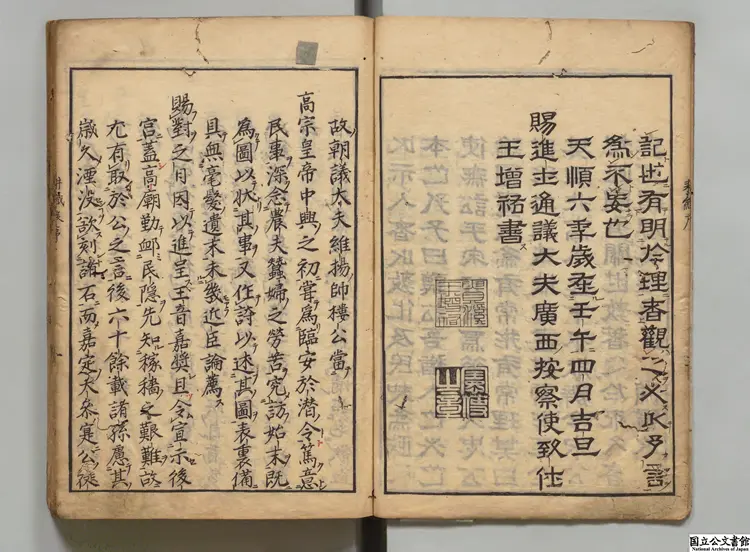 記也有明於理者觀之必以予言
爲不妄也
天順六年歲在壬午四月吉旦
賜進士通議大夫廣西按察使致仕
王增祐書
故朝議大夫維揚帥樓公當
高宗皇帝中興之初嘗爲臨安於潜令篤意
民事深念農夫蠶婦之勞苦究訪始末既
為圖以状其事又作詩以述其圖表裏備
具無毫髪遺末未幾近臣論薦
賜對之日因以進呈玉音嘉奨且令宣示後
宮蓋高廟勤卹民隱先知稼穡之艱難故
尤有取於公之言後六十餘載諸孫慮其
歳久湮没欲刻諸石而嘉定大參寔公從
国立公文書館
National Archives of Japan